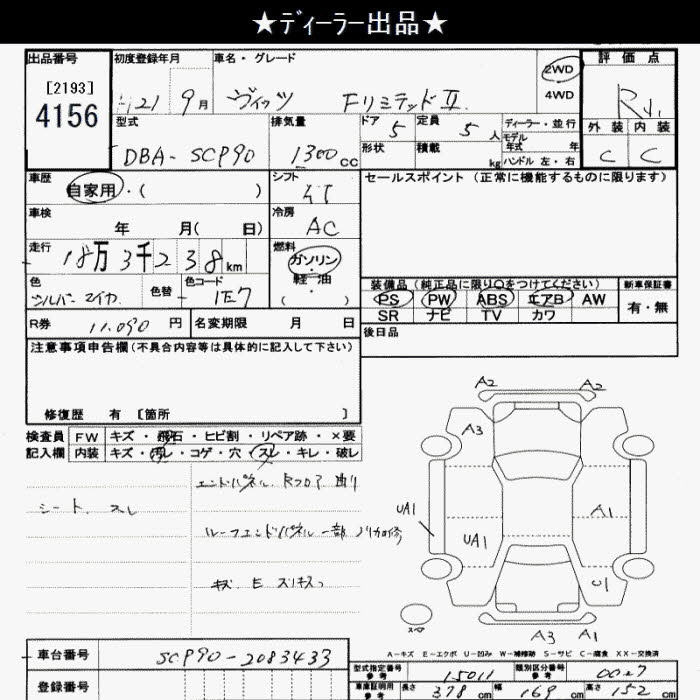 ★ディーラー出品★
出品番号 初度登録年月 車名・グレード 2WD 4WD 評価点
[2193]
4156
H21 9月 ヴィッツ FリミテッドⅡ R1
型式 排気量 ドア 定員 ディーラー・並行 外装 内装
DBA-SCP90 1300cc 5 5人 モデル年式 年 C C
形状 積載 kg ハンドル 左・右
車歴 シフト セールスポイント(正常に機能するものに限ります)
自家用・( )
車検 冷房
年 月( 日) AC
走行 燃料
18万3千238km ガソリン・軽・油
色 色替 色コード ( )
シルバーマイカ 1E7
装備品(純正品に限り○をつけてください) 新車保証書
PS PW ABS エアB AW 有・無
SR ナビ TV カワ
R券 11.090円 名変期限 月 日 後日品
注意事項申告欄(不具合内容等は具体的に記入して下さい)
修復歴 有 [箇所 ]
検査員 FW キズ・飛石・ヒビ割・リペア跡・×要
記入欄 内装 キズ・汚レ・コゲ・穴・スレ・キレ・破レ
エンドパネル Rフロア 曲り
シート スレ
ルーフエンドパネル 一部
キズ E スリキズ
A2 A2
A3
UA1 A1
UA1
U1
スペア
A3 A1
A-キズ E-エクボ U-凹み W-補修跡 S-サビ C-腐食 XX-交換済
車台番号 SCP90-2083433
登録番号
型式指定番号 参考 15011 類別区分番号 参考 0027
車庫証明用 参考 長さ 378cm 幅 169cm 高さ 152cm